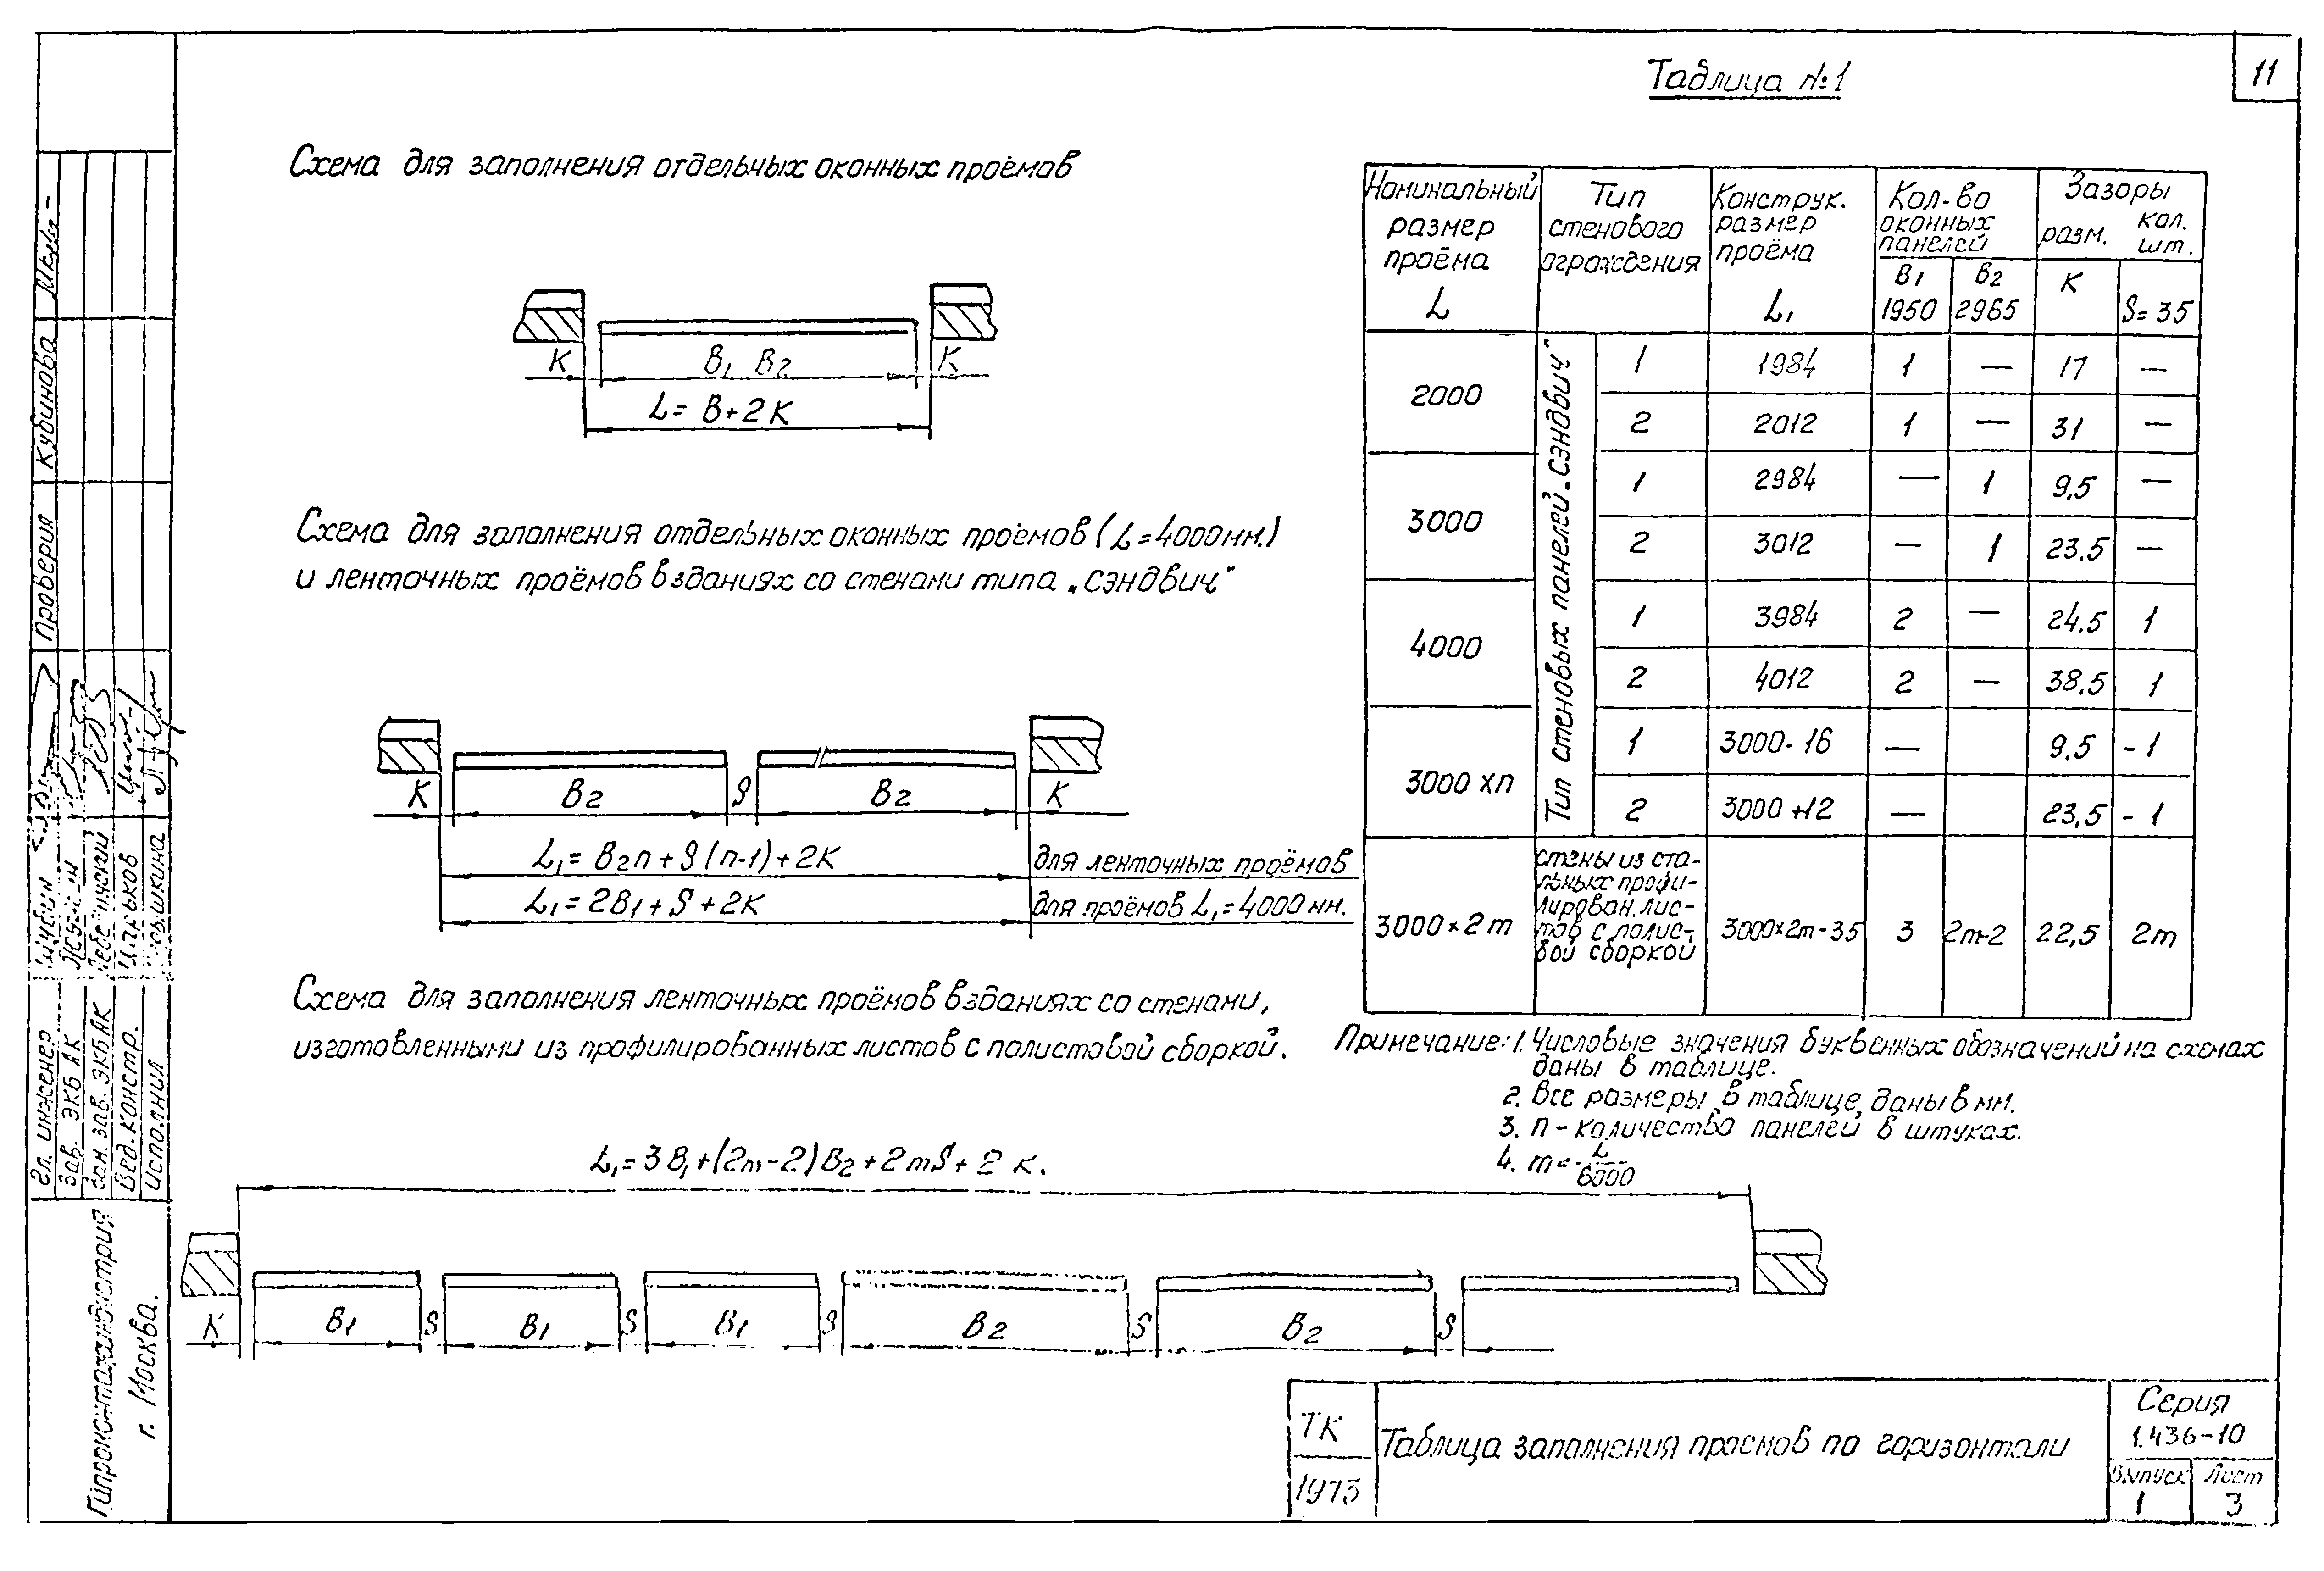 11
Таблица №1
Схема для заполнения отдельных оконных проёмов
К В1 В2 К
L = В+2К
Схема для заполнения отдельных оконных проёмов (L=4000мм.)
и ленточных проёмов в зданиях со стенами типа „Сэндвич"
К В2 S В2 К
L1= В2n + S (n-1) + 2К для ленточных проёмов
L1= 2В1 + S + 2К для проёмов L1=4000 мм.
Схема для заполнения ленточных проёмов в зданиях со стенами,
изготовленными из профилированных листов с полистовой сборкой.
L1= 3В1+(2m-2)В2+2mS+2К.
К В1 S В1 S В1 S В2 S В2 S
Номинальный размер проёма L
Тип стенового ограждения
Конструк. размер проёма L1
Кол-во оконных панелей
В1 1950
В2 2965
Зазоры
разм. К
кол. шт. S=35
Тип стеновых панелей „Сэндвич"
2000 1 1984 1 — 17 —
2 2012 1 — 31 —
3000 1 2984 — 1 9,5 —
2 3012 — 1 23.5 —
4000 1 3984 2 — 24.5 1
2 4012 2 — 38.5 1
3000 хn 1 3000-16 — 9.5 -1
2 3000+12 — 23,5 -1
3000×2m стены из стальных профилирован. листов с полистовой сборкой 3000×2m-35 3 2m-2 22,5 2m
Примечание: 1. Числовые значения буквенных обозначений на схемах
даны в таблице.
2. Все размеры в таблице даны в мм.
3. n - количество панелей в штуках.
4. m = L/6000
ТК
1973
Таблица заполнения проемов по горизонтали
Серия
1.436-10
Выпуск Лист
1 3
Проверил Кубинова
Гл. инженер
Зав. ЭКБ АК
Зам. зав. ЭКБ АК
Вед. констр.
Исполнил
г. Москва.